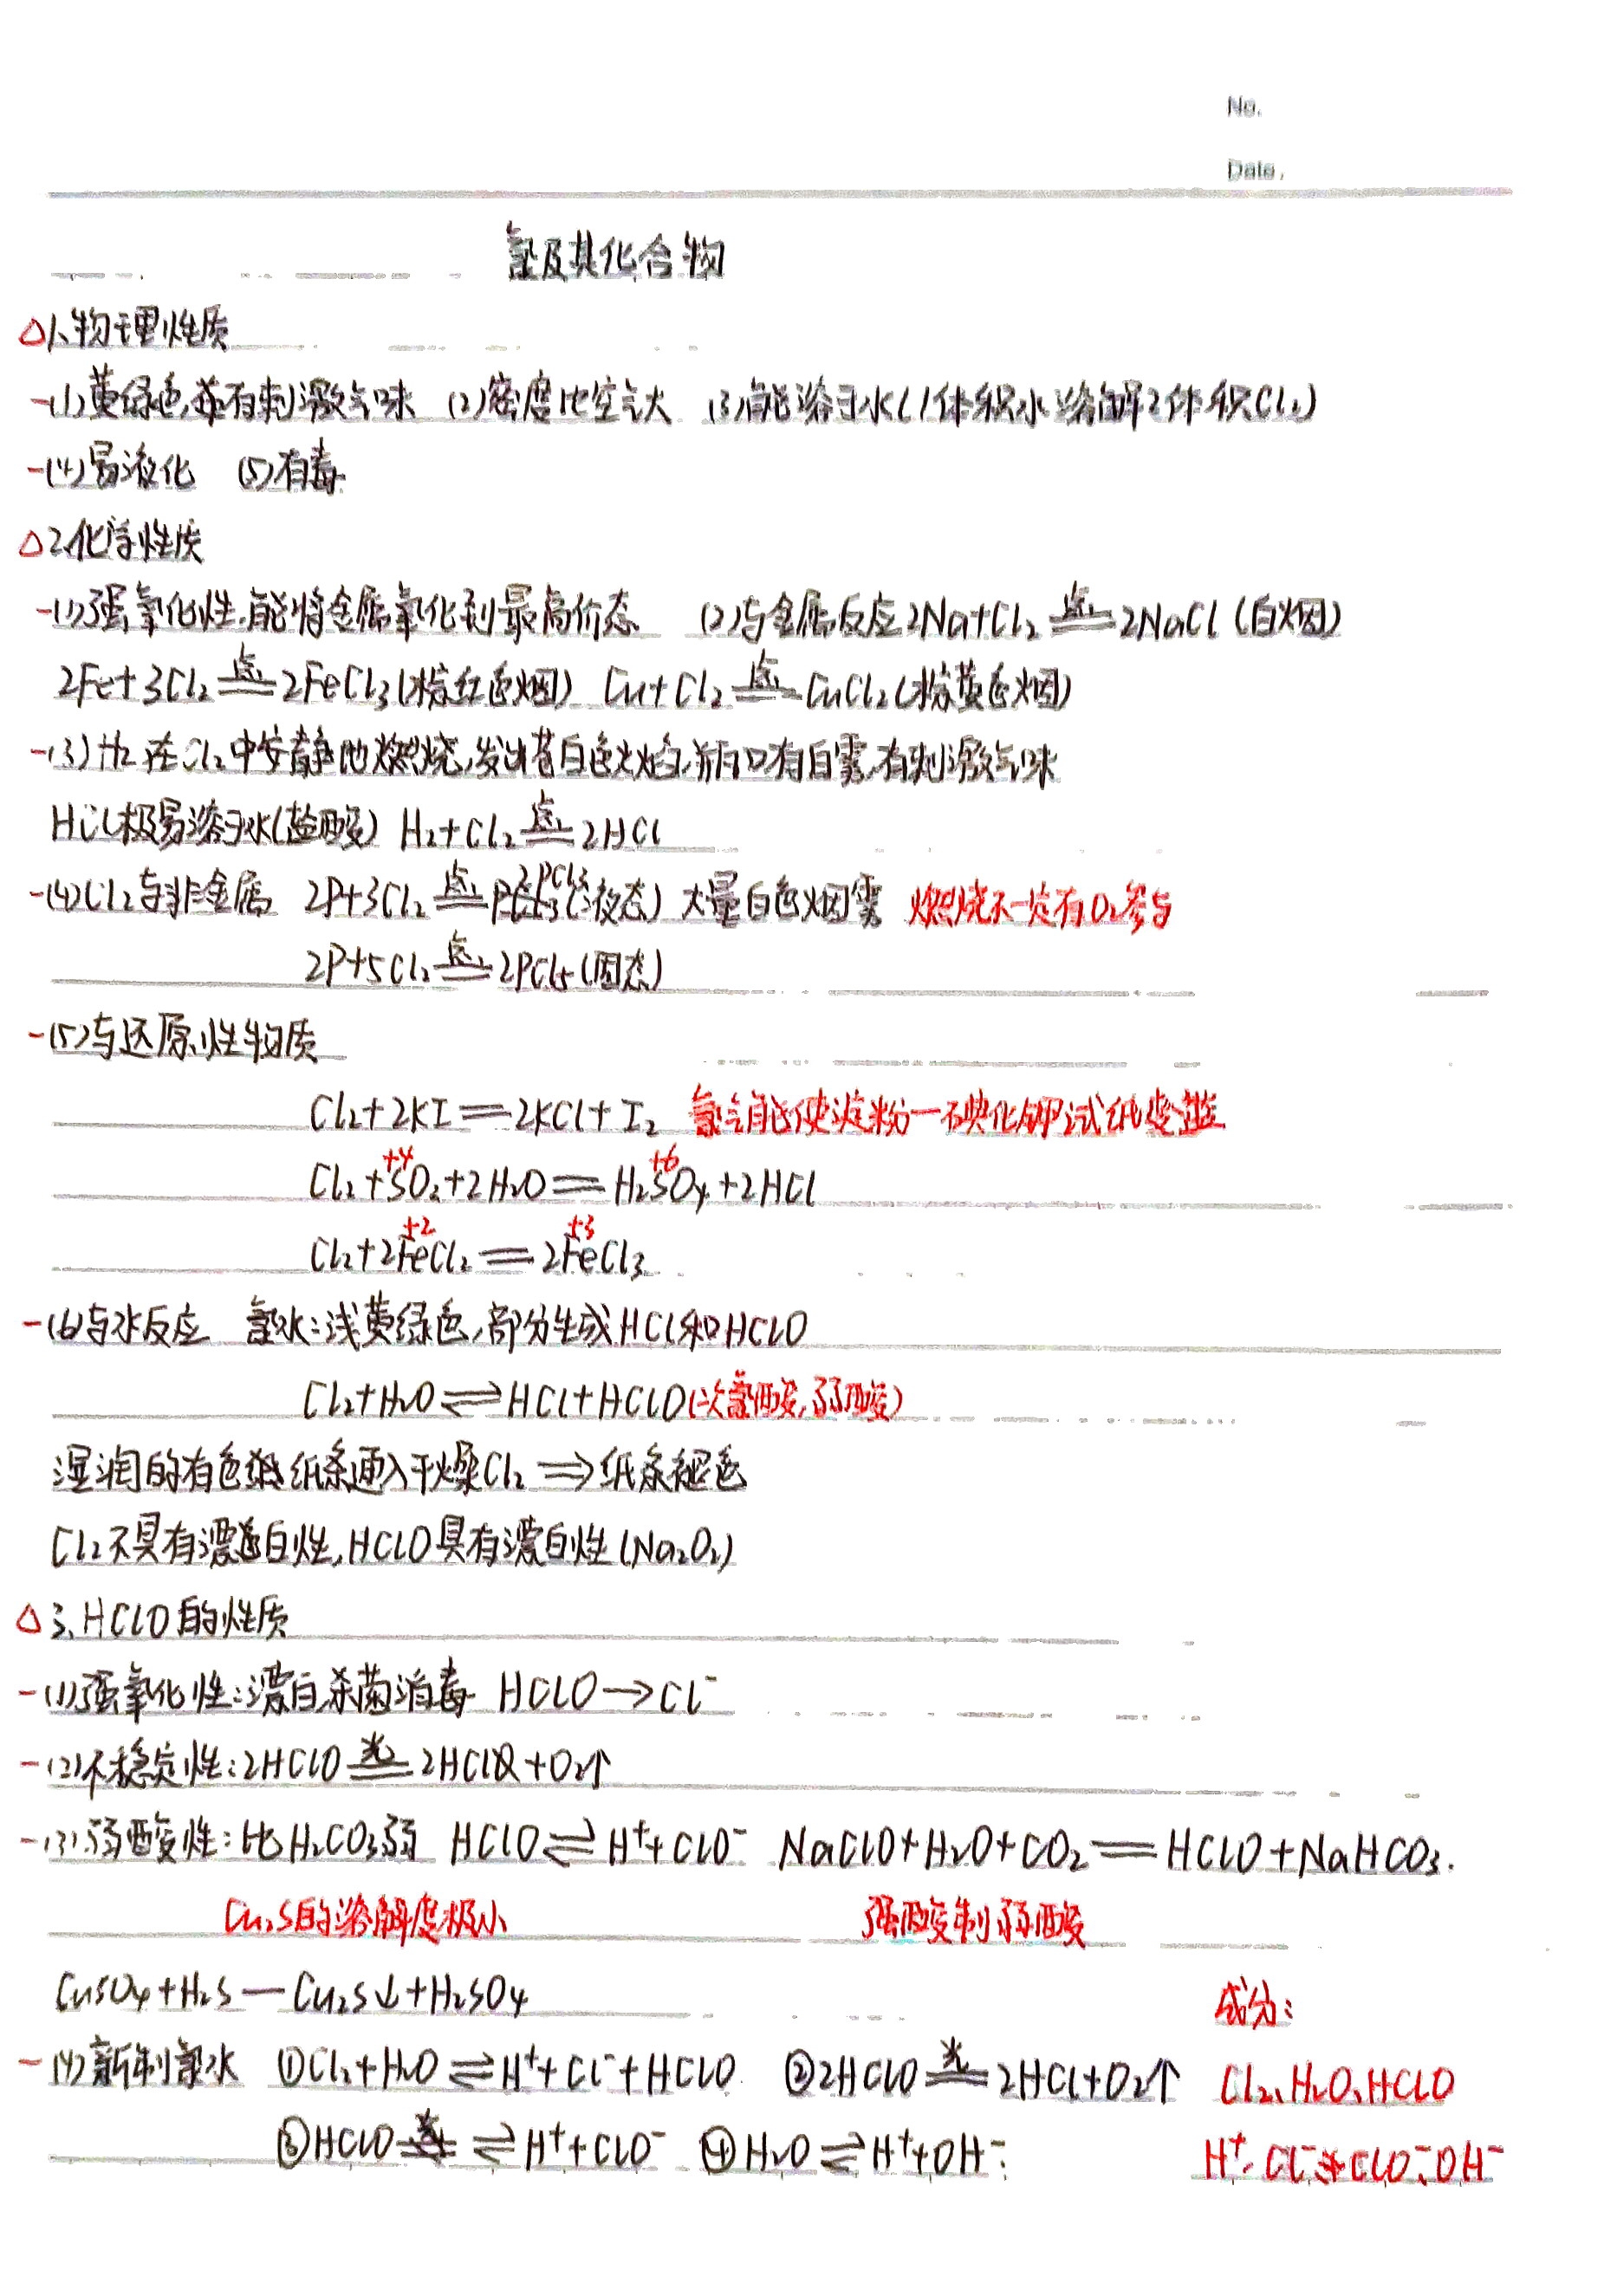 No.
Date.
氯及其化合物
△1、物理性质
-(1)黄绿色,有刺激气味 (2)密度比空气大 (3)能溶于水(1体积水溶解2体积Cl₂)
-(4)易液化 (5)有毒
△2.化学性质
-(1)强氧化性,能将金属氧化到最高价态 (2)与金属反应 2Na+Cl₂ 点燃══ 2NaCl (白烟)
2Fe+3Cl₂ 点燃══ 2FeCl₃(棕红色烟) Cu+Cl₂ 点燃══ CuCl₂(棕黄色烟)
-(3)H₂在Cl₂中安静地燃烧,发出苍白色火焰,瓶口有白雾,有刺激气味
HCl极易溶于水(盐酸) H₂+Cl₂ 点燃══ 2HCl
-(4)Cl₂与非金属 2P+3Cl₂ 点燃══ 2PCl₃(液态) 大量白色烟雾 燃烧不一定有O₂参与
2P+5Cl₂ 点燃══ 2PCl₅(固态)
-(5)与还原性物质
Cl₂+2KI══2KCl+I₂ 氯气能使淀粉—碘化钾试纸变蓝
+4 +6
Cl₂+SO₂+2H₂O══H₂SO₄+2HCl
+2 +3
Cl₂+2FeCl₂══2FeCl₃
-(6)与水反应 氯水:浅黄绿色,部分生成HCl和HClO
Cl₂+H₂O⇌HCl+HClO(次氯酸,弱酸)
湿润的有色纸条通入干燥Cl₂⇒纸条褪色
Cl₂不具有漂白性,HClO具有漂白性(Na₂O₂)
△3、HClO的性质
-(1)强氧化性:漂白杀菌消毒 HClO→Cl⁻
-(2)不稳定性:2HClO 光══ 2HCl+O₂↑
-(3)弱酸性:比H₂CO₃弱 HClO⇌H⁺+ClO⁻ NaClO+H₂O+CO₂══HClO+NaHCO₃.
Cu₂S的溶解度极小 强酸制弱酸
CuSO₄+H₂S—Cu₂S↓+H₂SO₄ 成分:
-(4)新制氯水 ①Cl₂+H₂O⇌H⁺+Cl⁻+HClO ②2HClO 光══ 2HCl+O₂↑ Cl₂、H₂O、HClO
③HClO⇌H⁺+ClO⁻ ④H₂O⇌H⁺+OH⁻; H⁺、Cl⁻、ClO⁻、OH⁻